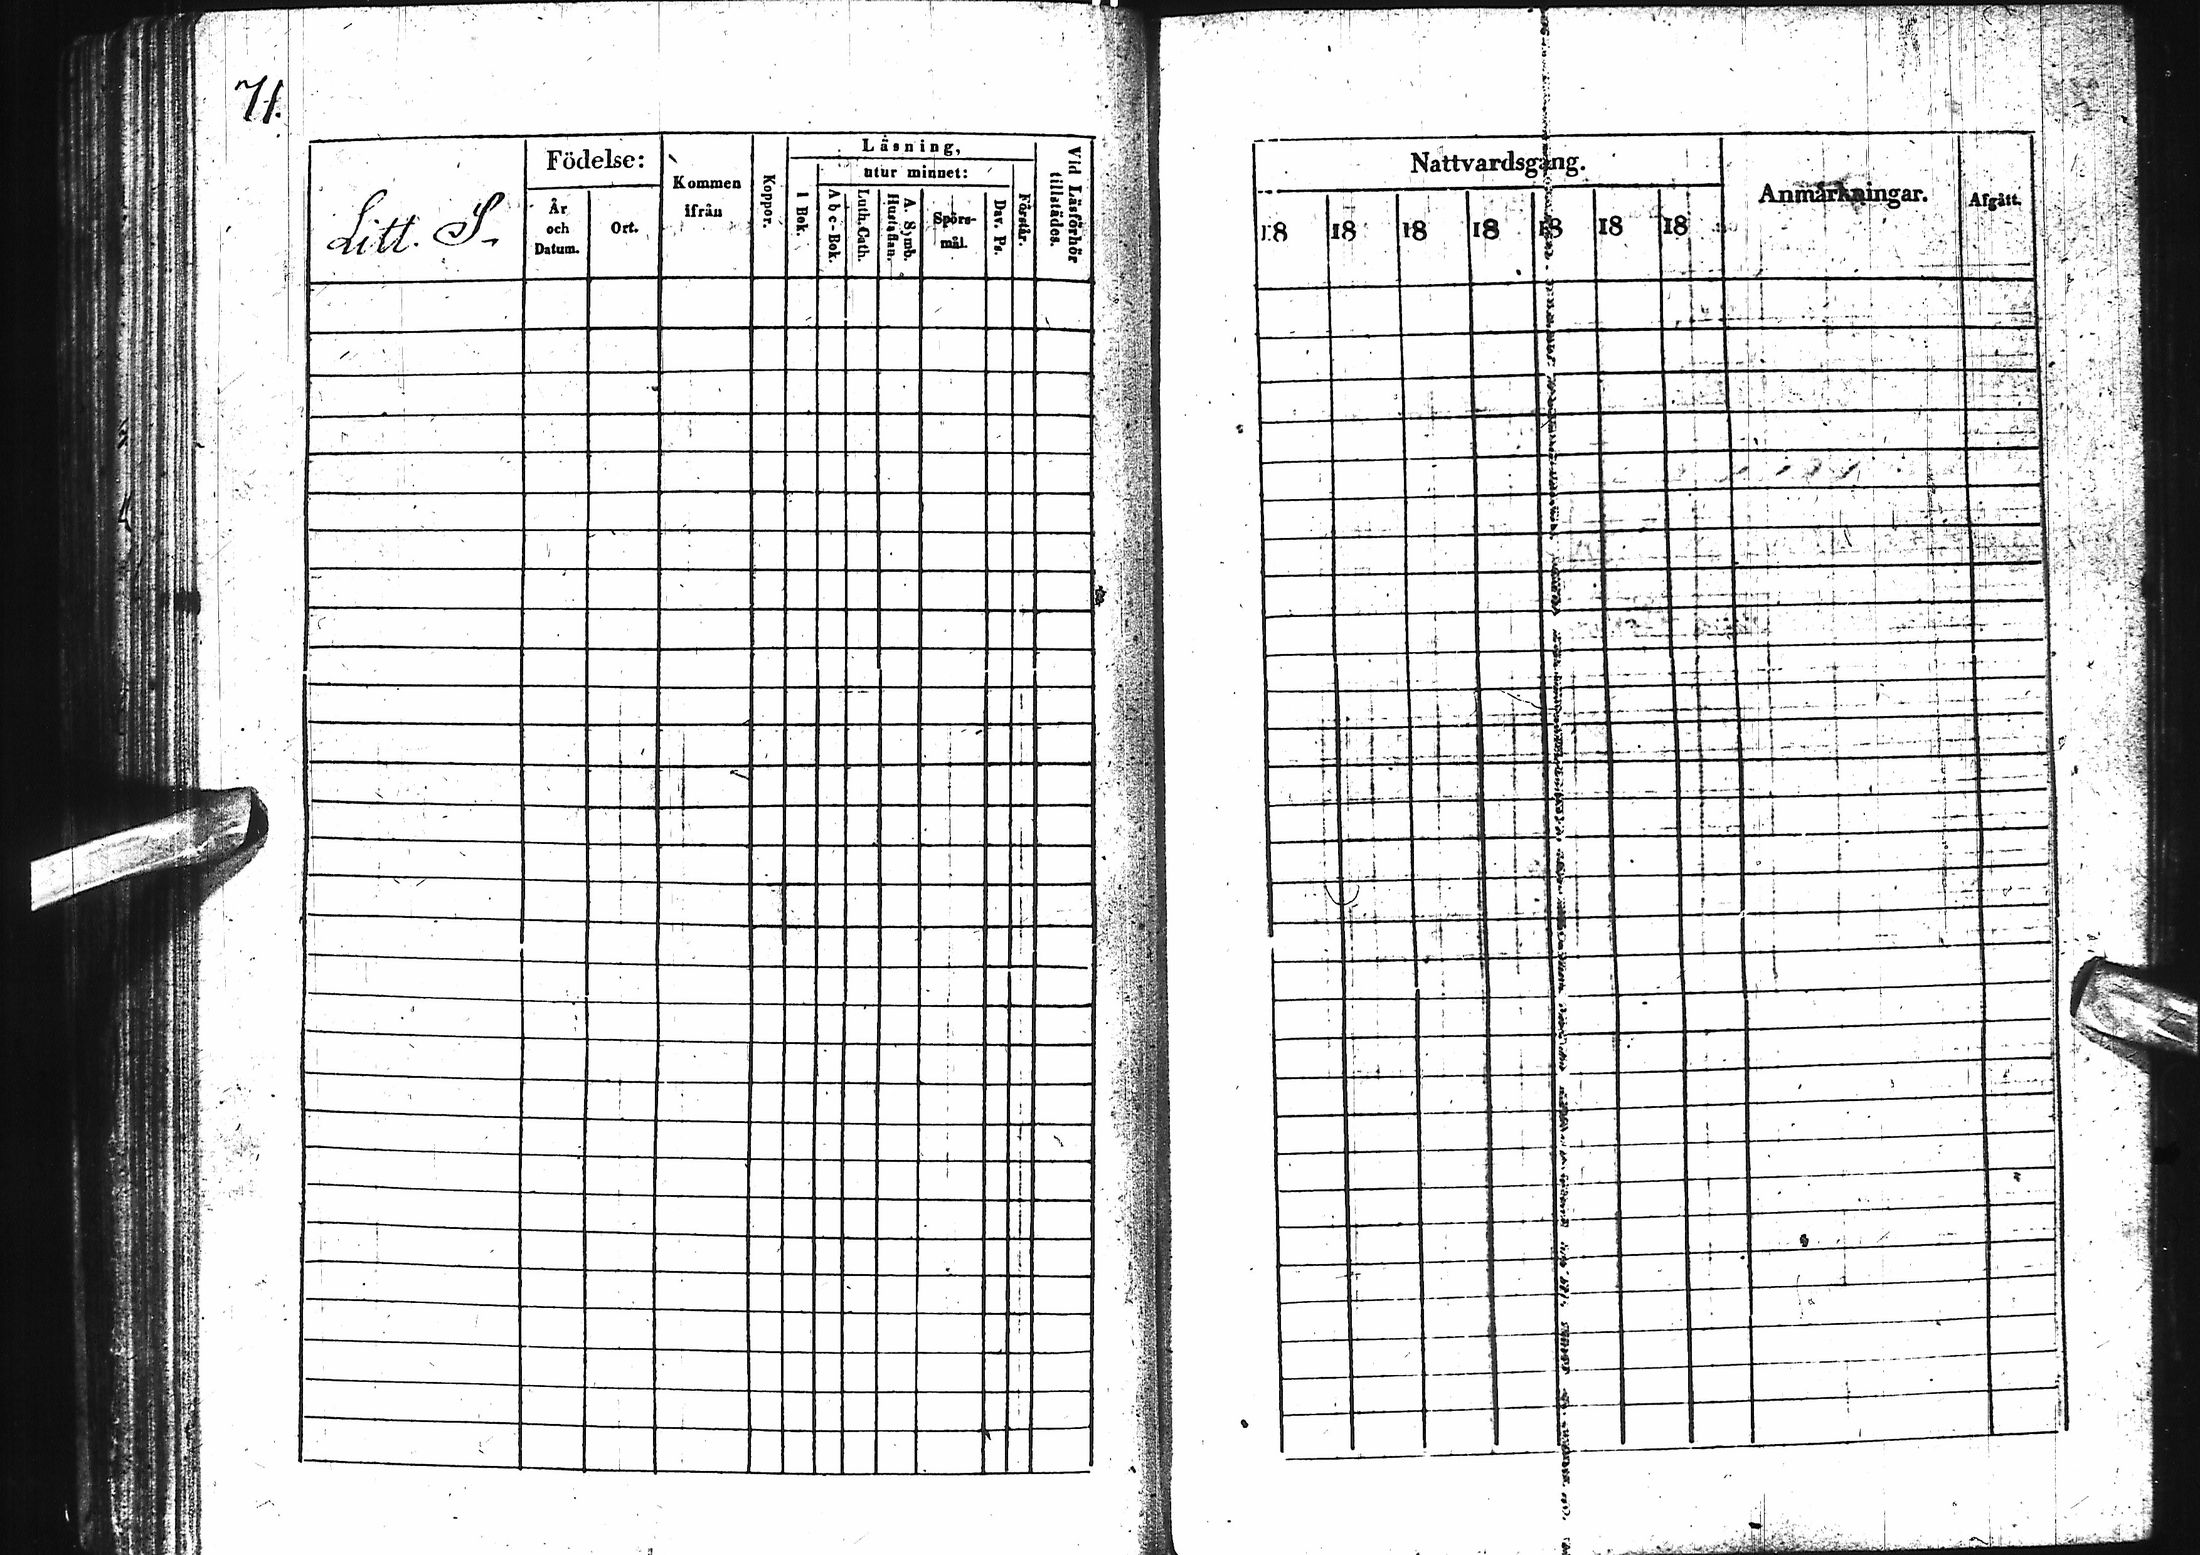 71.
Litt. S.
Födelse:
År
och
Datum.
Ort.
Kommen
ifrån
Koppor.
Läsning,
utur minnet:
I Bok.
Abc-Bok.
Luth. Cath.
A. Symb.
Hustaflan.
Spörs-
mål.
Dav. Ps.
Förstår.
Vid Läsförhör
tillstädes.
Nattvardsgång.
18 18 18 18 18 18 18
Anmärkningar.
Afgått.